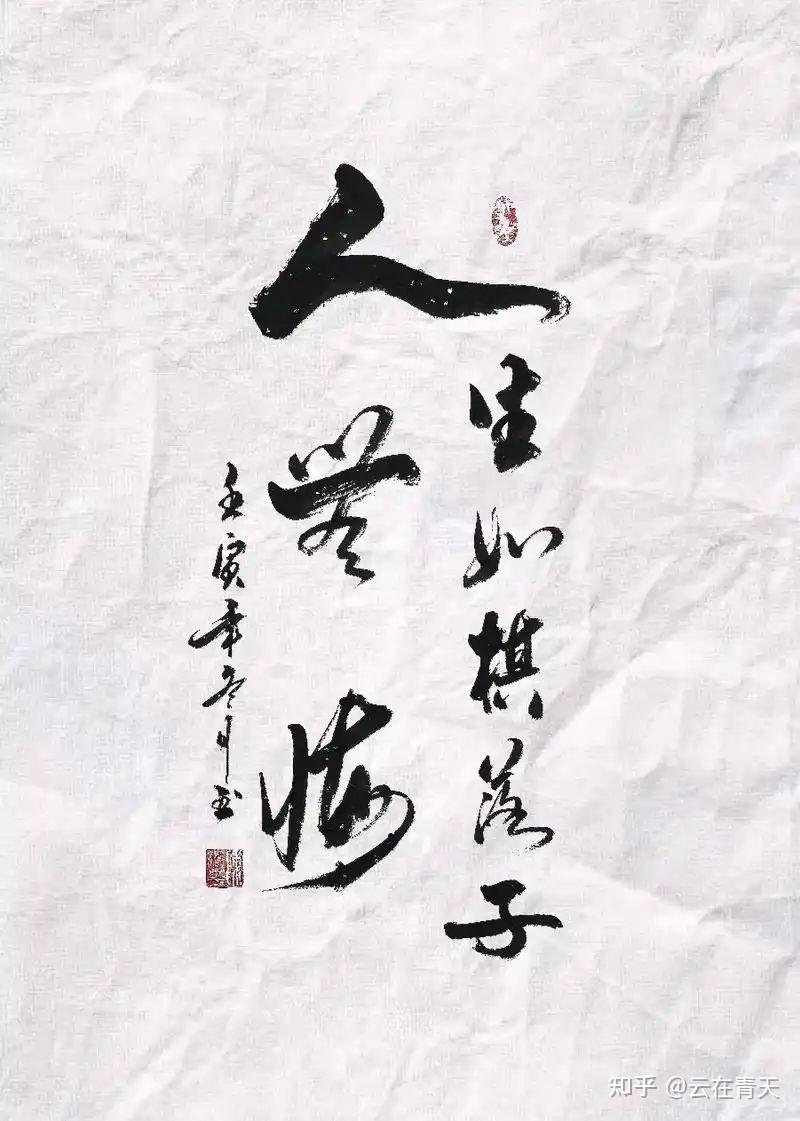 人生如棋落子
無悔
壬寅年冬月玉
知乎 @云在青天